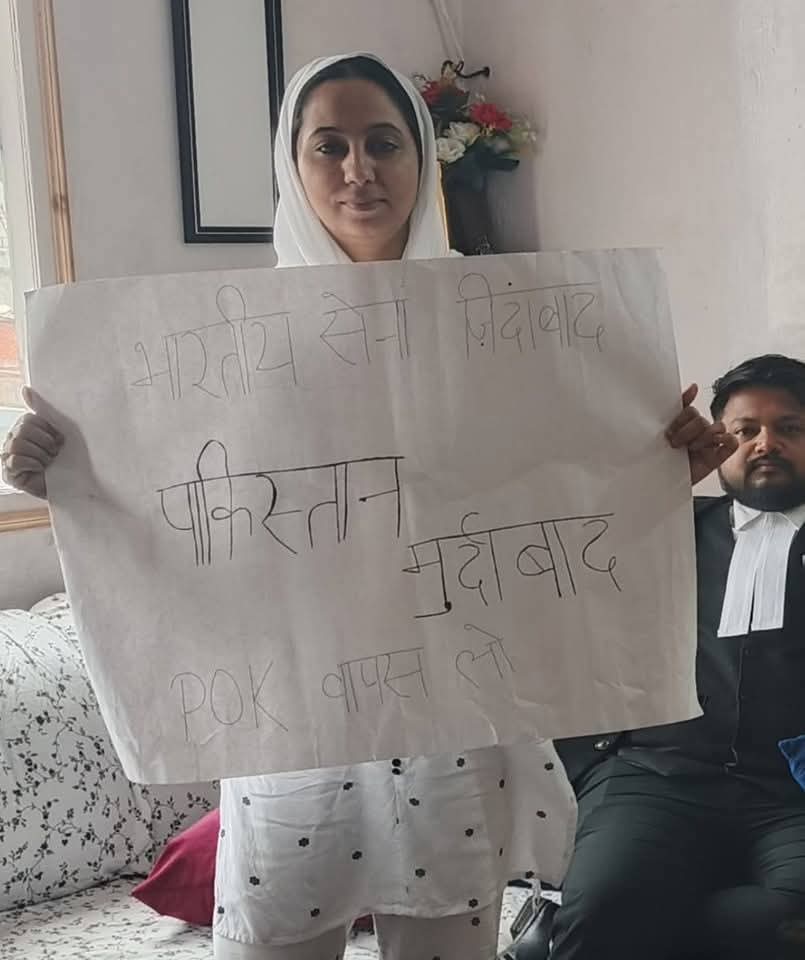 भारतीय सेना ज़िंदाबाद
पाकिस्तान
मुर्दाबाद
POK वापस लो